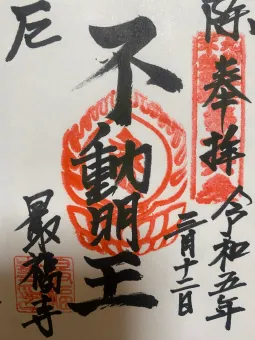 厄除
奉拝
令和五年
二月十二日
不動明王
最福寺